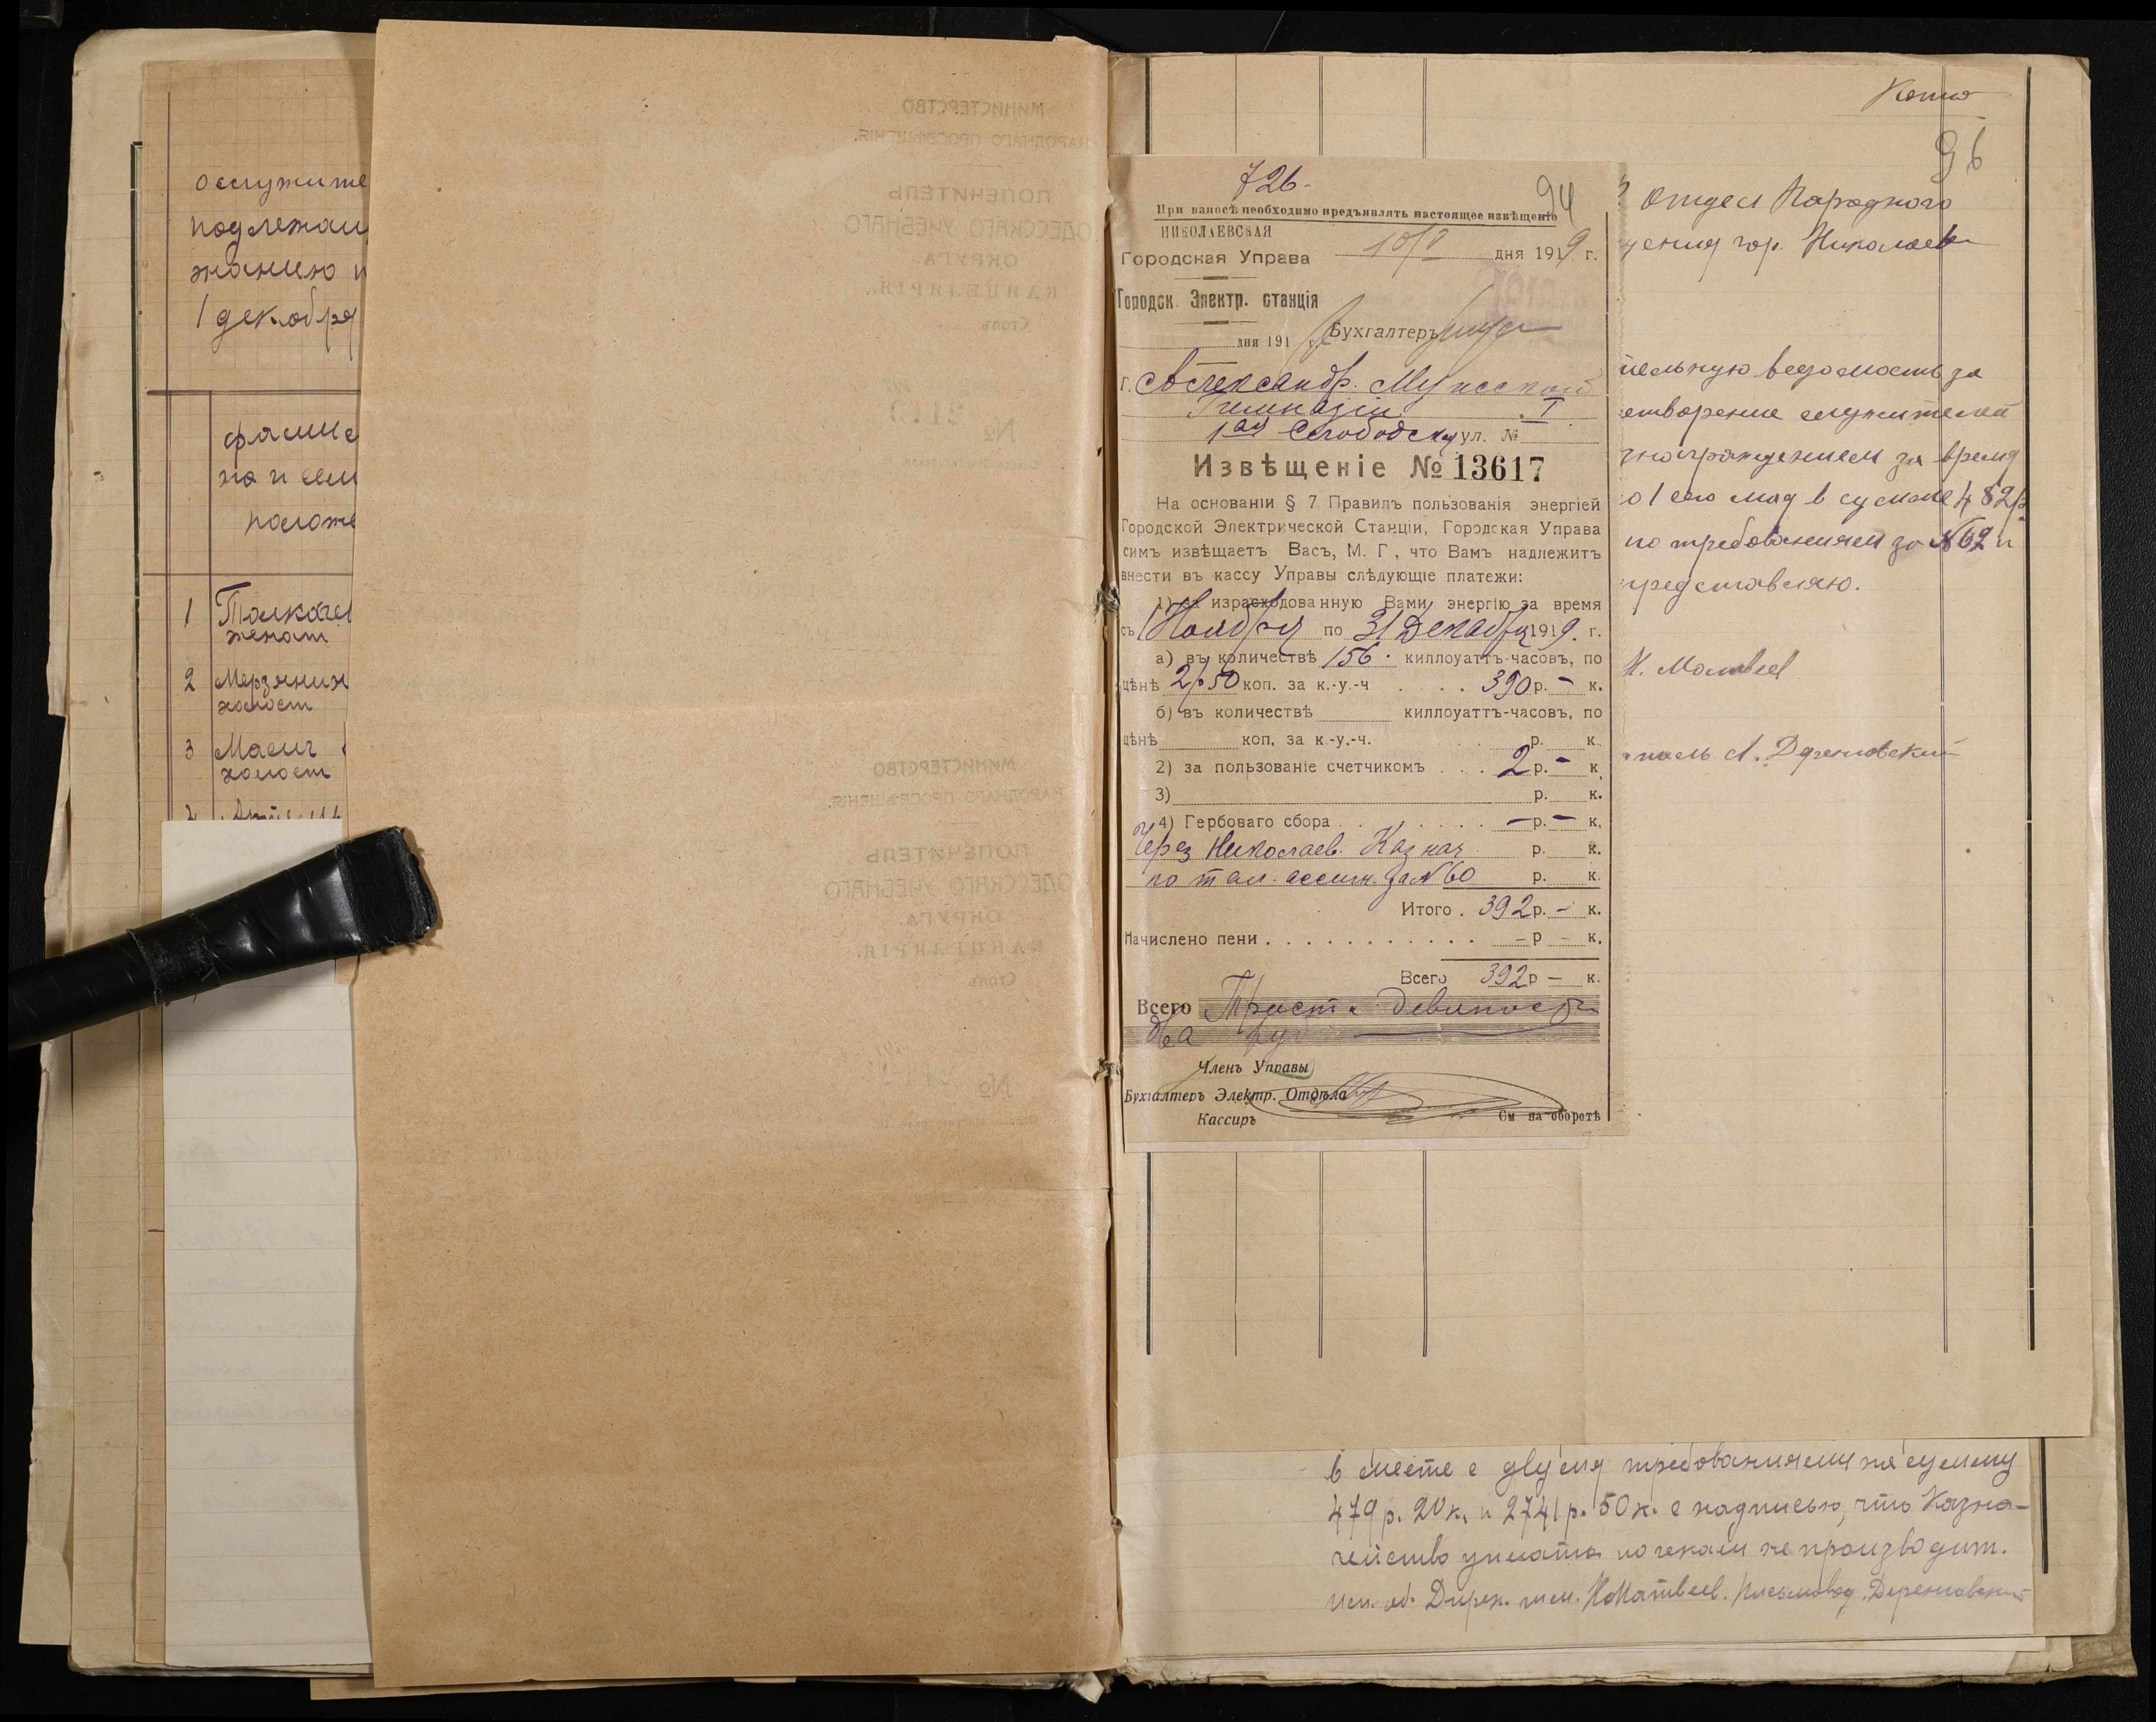 подлежащ
1 декабря
1
женат
2
холост
3 Масич
холост
МИНИСТЕРСТВО
НАРОДНАГО ПРОСВѢЩЕНІЯ.
ПОПЕЧИТЕЛЬ
ОДЕССКАГО УЧЕБНАГО
ОКРУГА.
КАНЦЕЛЯРІЯ.
Столъ
№
МИНИСТЕРСТВО
НАРОДНАГО ПРОСВѢЩЕНІЯ.
ПОПЕЧИТЕЛЬ
ОДЕССКАГО УЧЕБНАГО
ОКРУГА.
КАНЦЕЛЯРІЯ.
Столъ
№
726.
94
При взносѣ необходимо предъявлять настоящее извѣщеніе
НИКОЛАЕВСКАЯ
Городская Управа дня 1919 г.
Городск. Электр. станція
дня 191 г. Бухгалтеръ
г. Александр. Мужской
Гимназіи I
1ая Слободская ул. №
Извѣщеніе № 13617
На основаніи § 7 Правилъ пользованія энергіей
Городской Электрической Станціи, Городская Управа
симъ извѣщаетъ Васъ, М. Г., что Вамъ надлежитъ
внести въ кассу Управы слѣдующіе платежи:
1) за израсходованную Вами энергію за время
съ 1 Ноября по 31 Декабря 1919. г.
а) въ количествѣ 156 киллоуаттъ-часовъ, по
цѣнѣ 2р50 коп. за к.-у.-ч . . . . 390 р. – к.
б) въ количествѣ киллоуаттъ-часовъ, по
цѣнѣ коп, за к.-у.-ч. р. к.
2) за пользованіе счетчикомъ . . . 2 р. – к.
3) р. к.
4) Гербоваго сбора . . . . . . . – р. – к.
Через Николаев. Казнач р. к.
по тал. ассигн. за №60 р. к.
Итого . 392 р. – к.
Начислено пени . . . . . . . . . . . – р – к.
Всего 392 р – к.
Всего Триста девяносто
два руб
Членъ Управы
Бухгалтеръ Электр. Отдѣла
Кассиръ См. на оборотѣ
Копия
96
Отдел Народного
щения гор. Николаева
тельную ведомость за
етворение служителей
знаграждением за время
о 1 его мая в сумме 482р
по требованиям за №62 и
представляю.
Н. Матвеев
в месте с двумя требованиями на сумму
479 р. 20 к. и 2741 р. 50 к. с надписью, что Казна-
чейство уплаты по чекам не производит.
Исп. об. Дирек. гим. Н Матвеев. Письмовод. Дереновский